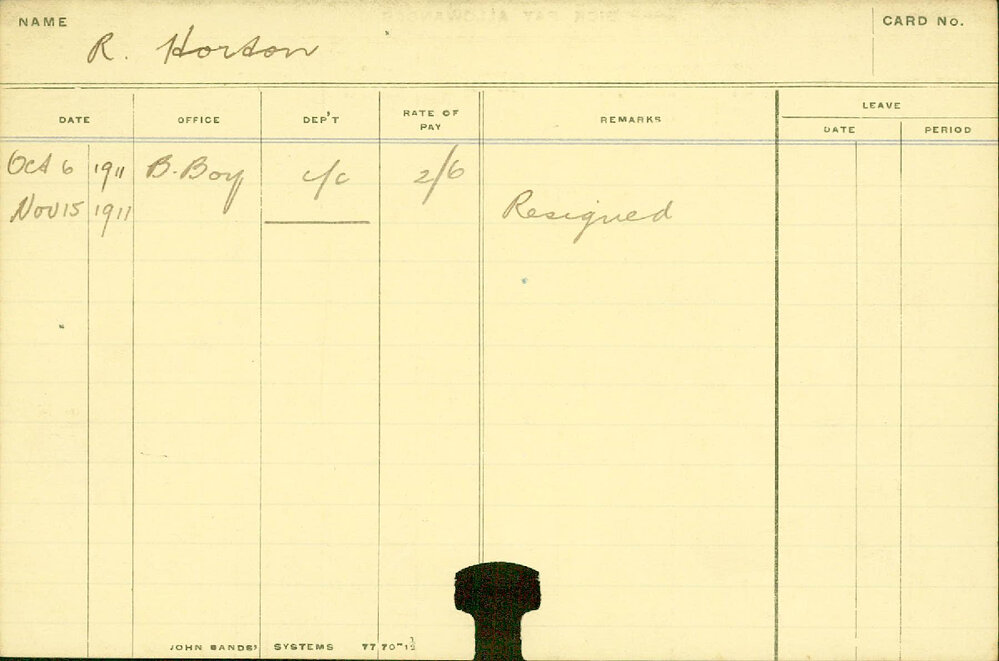 NAME R. Horton CARD No.
DATE OFFICE DEP'T RATE OF PAY REMARKS LEAVE
DATE PERIOD
Oct 6 1911 B. Boy c/c 2/6
Nov 15 1911 Resigned
JOHN SANDS' SYSTEMS